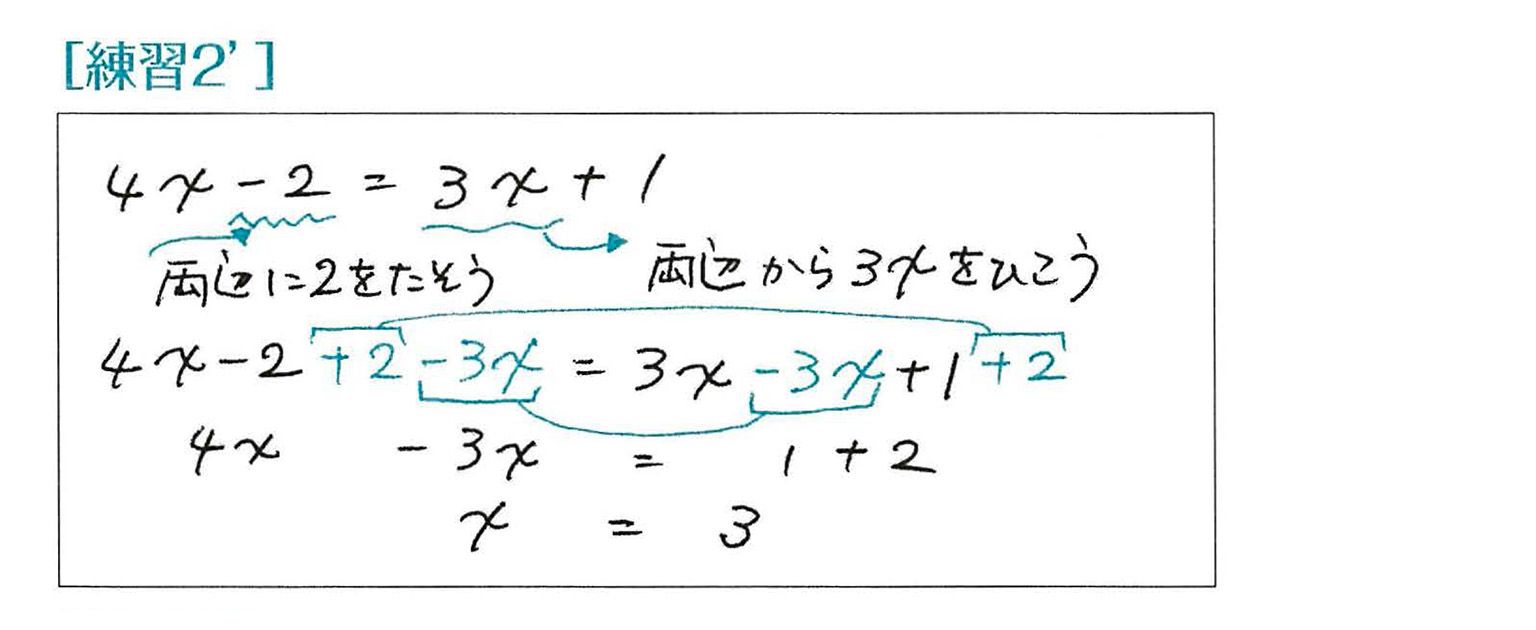 [練習2']
4x-2 = 3x+1
両辺に2をたそう 両辺から3xをひこう
4x-2+2-3x = 3x-3x+1+2
4x -3x = 1+2
x = 3